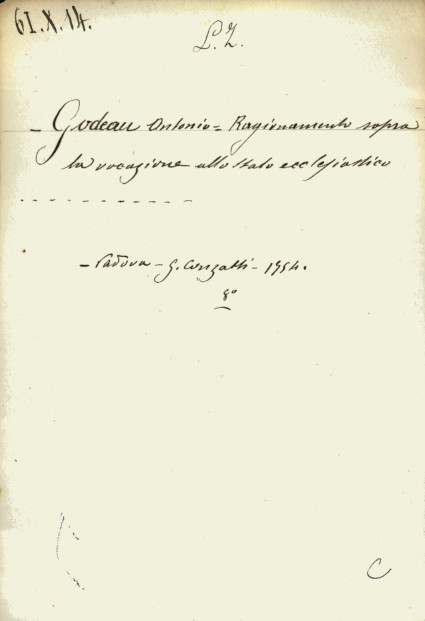 61.X.14.
L. Z.
- Godeau Antonio = Ragionamento sopra
la vocazione allo stato ecclesiastico
- - - - - - - - - - - - - -
- Padova - G. Conzatti - 1754.
8°
C